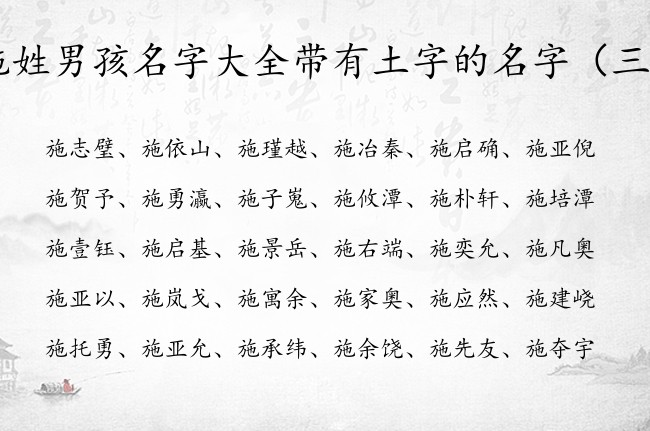 施姓男孩名字大全带有土字的名字（三
施志璧、施依山、施瑾越、施冶秦、施启确、施亚倪
施贺予、施勇瀛、施子嵬、施攸潭、施朴轩、施培潭
施壹钰、施启基、施景岳、施右端、施奕允、施凡奥
施亚以、施岚戈、施寓余、施家奥、施应然、施建峣
施托勇、施亚允、施承纬、施余饶、施先友、施夺宇